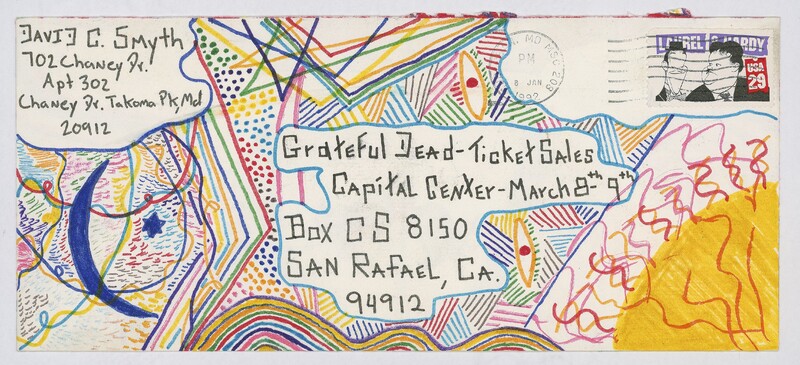 DAVID C. Smyth
702 Chaney Dr.
Apt 302
Chaney Dr. Takoma Pk, Md
20912
MD MSC 208
PM
8 JAN
1992
LAUREL & HARDY
USA
29
Grateful Dead-Ticket Sales
Capital Center-March 8-th 9th
Box CS 8150
SAN RAFAEL, CA.
94912